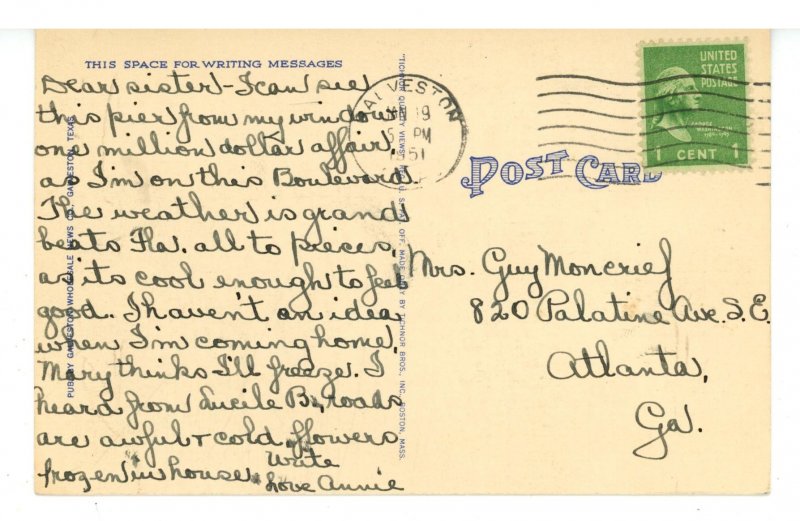 THIS SPACE FOR WRITING MESSAGES
Dear sister - I can see
this pier from my window
one million dollar affair,
as I'm on this Boulevard.
The weather is grand
beats Fla. all to pieces,
as its cool enough to feel
good. I haven't an idea
when I'm coming home.
Mary thinks I'll freeze. I
heard from Lucile B., roads
are awful + cold, flowers
frozen in house. Write
Love Annie
PUB. BY GALVESTON WHOLESALE NEWS CO., GALVESTON, TEXAS
"TICHNOR QUALITY VIEWS," OFF. MADE ONLY BY TICHNOR BROS., INC., BOSTON, MASS.
GALVESTON
19
PM
1951
POST CARD
UNITED
STATES
POSTAGE
GEORGE
WASHINGTON
1 CENT 1
Mrs. Guy Moncrief
820 Palatine Ave. S.E.
Atlanta,
Ga.